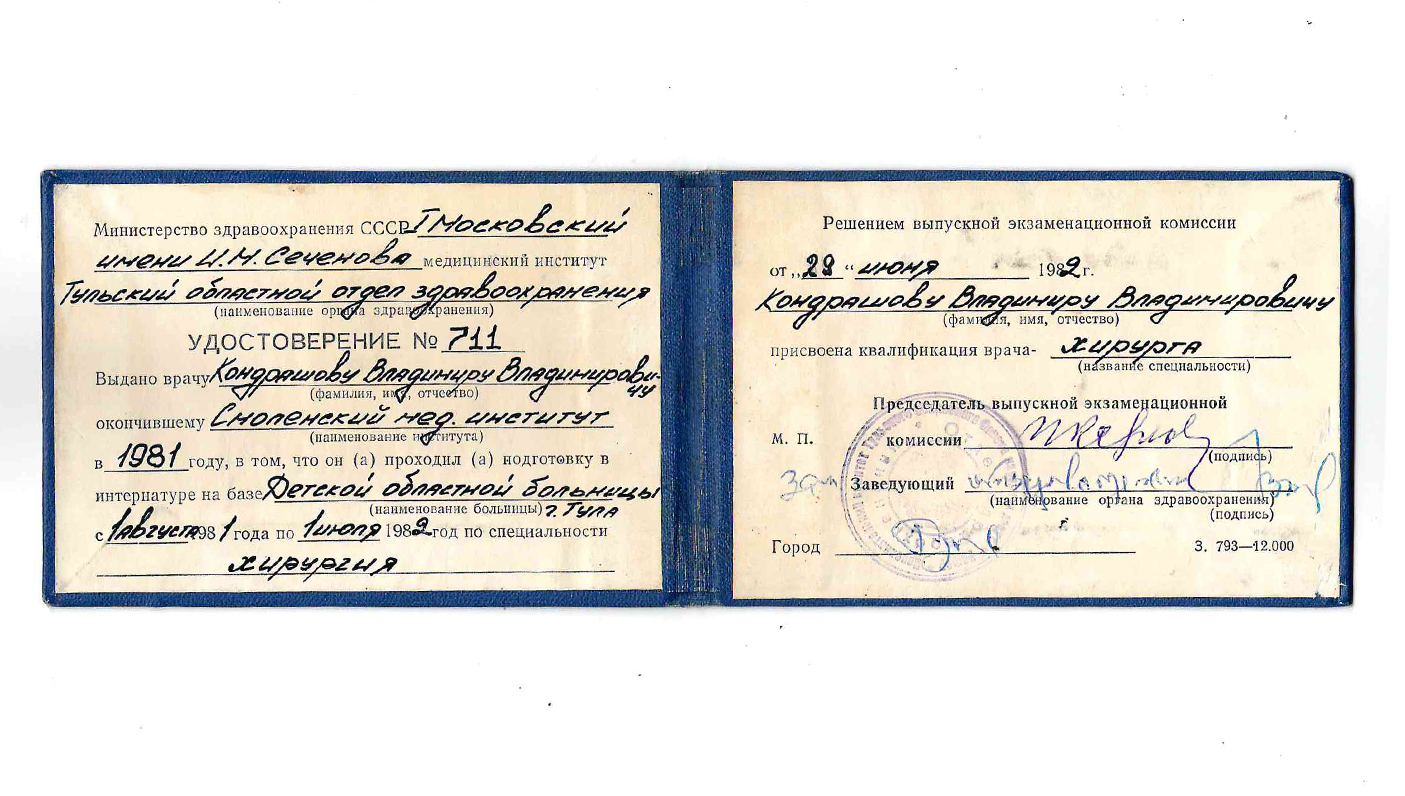 Министерство здравоохранения СССР I Московский
имени И.М. Сеченова медицинский институт
Тульский областной отдел здравоохранения
(наименование органа здравоохранения)
УДОСТОВЕРЕНИЕ № 711
Выдано врачу Кондрашову Владимиру Владимирови-
чу
(фамилия, имя, отчество)
окончившему Смоленский мед. институт
(наименование института)
в 1981 году, в том, что он (а) проходил (а) подготовку в
интернатуре на базе Детской областной больницы
(наименование больницы) г. Тула
с 1 августа 1981 года по 1 июля 1982 год по специальности
хирургия
Решением выпускной экзаменационной комиссии
от „28“ июня 1982 г.
Кондрашову Владимиру Владимировичу
(фамилия, имя, отчество)
присвоена квалификация врача- хирурга
(название специальности)
Председатель выпускной экзаменационной
М. П. комиссии
(подпись)
Зам Заведующий
(наименование органа здравоохранения)
(подпись)
Город
З. 793—12.000